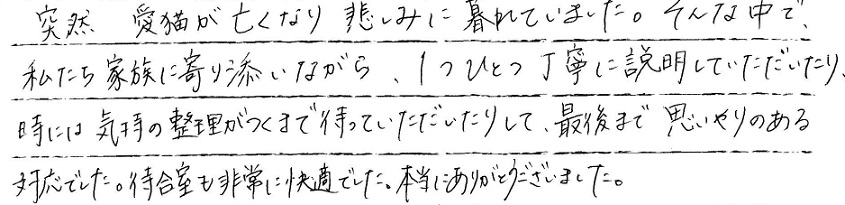 突然 愛猫が亡くなり 悲しみに暮れていました。そんな中で、
私たち家族に寄り添いながら、1つひとつ丁寧に説明していただいたり、
時には気持の整理がつくまで待っていただいたりして、最後まで思いやりのある
対応でした。待合室も非常に快適でした。本当にありがとうございました。